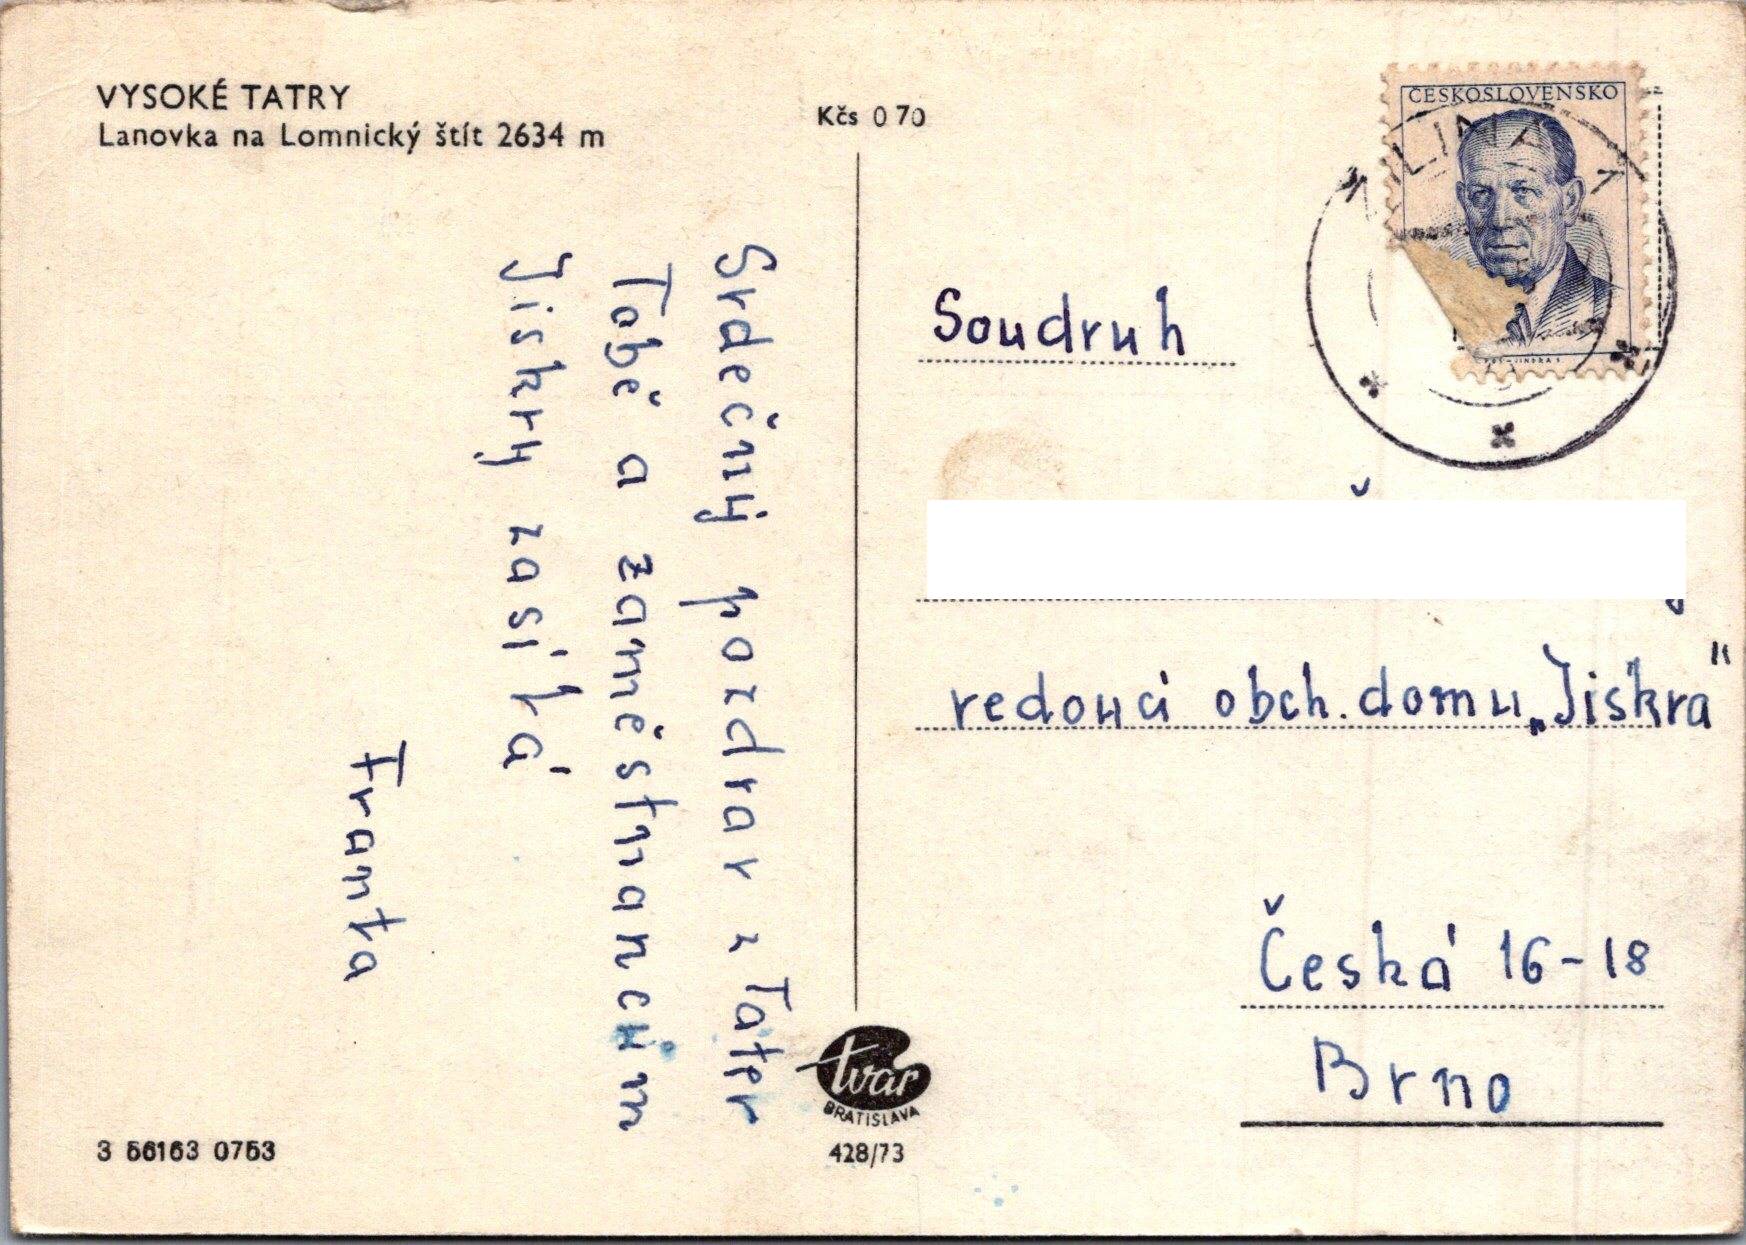 VYSOKÉ TATRY
Lanovka na Lomnický štít 2634 m
Kčs 0 70
ČESKOSLOVENSKO
ŽILINA 1
Srdečný pozdrav z Tater
Tobě a zaměstnancům
Jiskry zasílá
Franta
Soudruh
vedoucí obch. domu „Jiskra"
Česká 16-18
Brno
tvar
BRATISLAVA
428/73
3 56163 0753